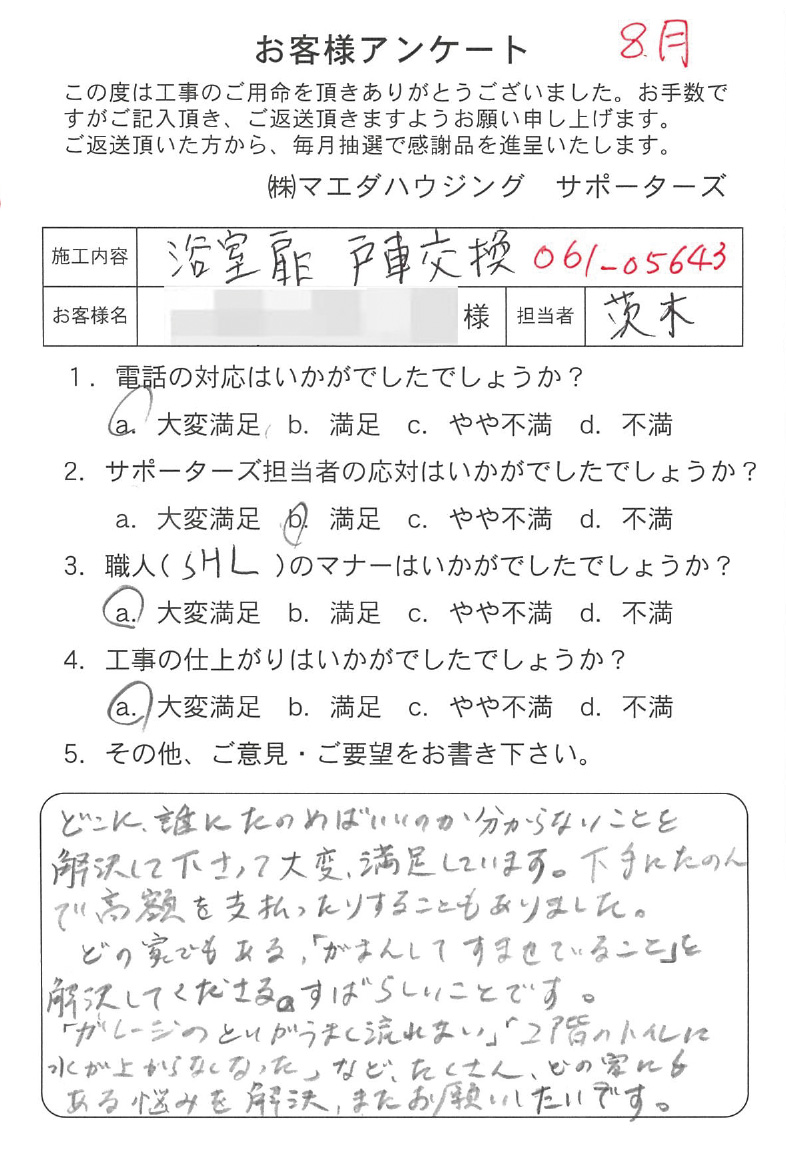 お客様アンケート 8月
この度は工事のご用命を頂きありがとうございました。お手数で
すがご記入頂き、ご返送頂きますようお願い申し上げます。
ご返送頂いた方から、毎月抽選で感謝品を進呈いたします。
㈱マエダハウジング サポーターズ
施工内容 浴室扉 戸車交換 061-05643
お客様名 様 担当者 茨木
1. 電話の対応はいかがでしたでしょうか？
a. 大変満足 b. 満足 c. やや不満 d. 不満
2. サポーターズ担当者の応対はいかがでしたでしょうか？
a. 大変満足 b. 満足 c. やや不満 d. 不満
3. 職人(SHL)のマナーはいかがでしたでしょうか？
a. 大変満足 b. 満足 c. やや不満 d. 不満
4. 工事の仕上がりはいかがでしたでしょうか？
a. 大変満足 b. 満足 c. やや不満 d. 不満
5. その他、ご意見・ご要望をお書き下さい。
どこに、誰にたのめばいいのか分からないことを
解決して下さって大変、満足しています。下手にたのん
で高額を支払ったりすることもありました。
どの家でもある、「がまんしてすませていること」を
解決してくださる。すばらしいことです。
「ガレージのといがうまく流れない」「2階のトイレに
水が上がらなくなった」など、たくさん、どの家にも
ある悩みを解決、またお願いしたいです。